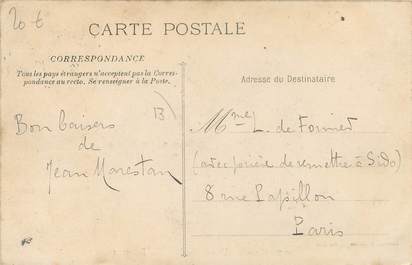 20 €
CARTE POSTALE
CORRESPONDANCE
Tous les pays étrangers n'acceptent pas la Corres-
pondance au recto. Se renseigner à la Poste.
Adresse du Destinataire
Bons baisers
de
Jean Marestan
Mme L. de
(avec prière de remettre à Sido)
8 rue Papillon
Paris